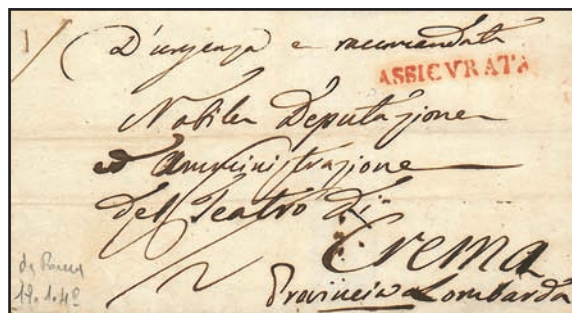 1/
D'urgenza e raccomandata
ASSICVRATA
Nobile Deputazione
ed Amministrazione
del Teatro di
Crema
Provincia Lombarda
da